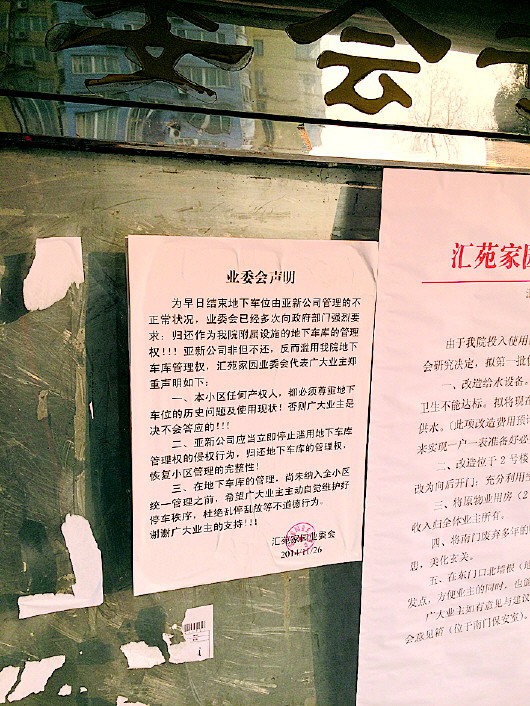 委会
业委会声明
为早日结束地下车位由亚新公司管理的不
正常状况，业委会已经多次向政府部门强烈要
求：归还作为我院附属设施的地下车库的管理
权！！！亚新公司非但不还，反而滥用我院地下
车库管理权，汇苑家园业委会代表广大业主郑
重声明如下：
一、本小区任何产权人，都必须尊重地下
车位的历史问题及使用现状！否则广大业主是
决不会答应的！！！
二、亚新公司应当立即停止滥用地下车库
管理权的侵权行为，归还地下车库的管理权，
恢复小区管理的完整性！
三、在地下车库的管理，尚未纳入全小区
统一管理之前，希望广大业主主动自觉维护好
停车秩序，杜绝乱停乱放等不道德行为。
谢谢广大业主的支持！！！
汇苑家园业委会
2014/11/26
汇苑家园
由于我院投入使用
会研究决定，拟第一批
一、改造给水设备。
卫生不能达标。拟将现在
供水。（此项改造费用预计
来实现一户一表准备好必
二、改造位于2号楼
改为向后开门；充分利用
三、将原物业用房（2
收入归全体业主所有。
四、将南门废弃多年的
想，美化玄关。
五、在东门口北墙根（
发点，方便业主的同时，也
广大业主如有意见与建议
会意见箱（位于南门保安室）。